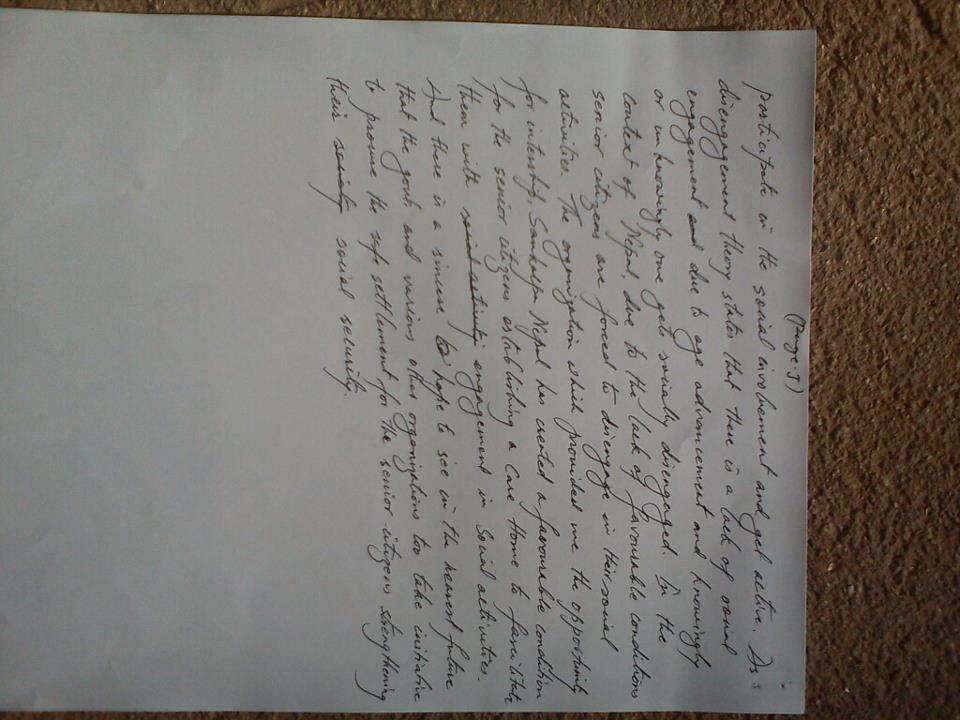 (Page-5)
participate in the social involvement and get active. As
disengagement theory states that there is a lack of social
engagement and due to age advancement and knowingly
or unknowingly one gets socially disengaged. In the
context of Nepal, due to the lack of favourable conditions
senior citizens are forced to disengage in their social
activities. The organization which provided me the opportunity
for internship, Sankalpa Nepal has created a favourable condition
for the senior citizens establishing a Care Home to fascilitate
them with social activity engagement in Social activities.
And there is a sincere hope to see in the nearest future
that the govt. and various other organizations too take initiative
to promote the safe settlement for the senior citizens strengthening
their society social security.